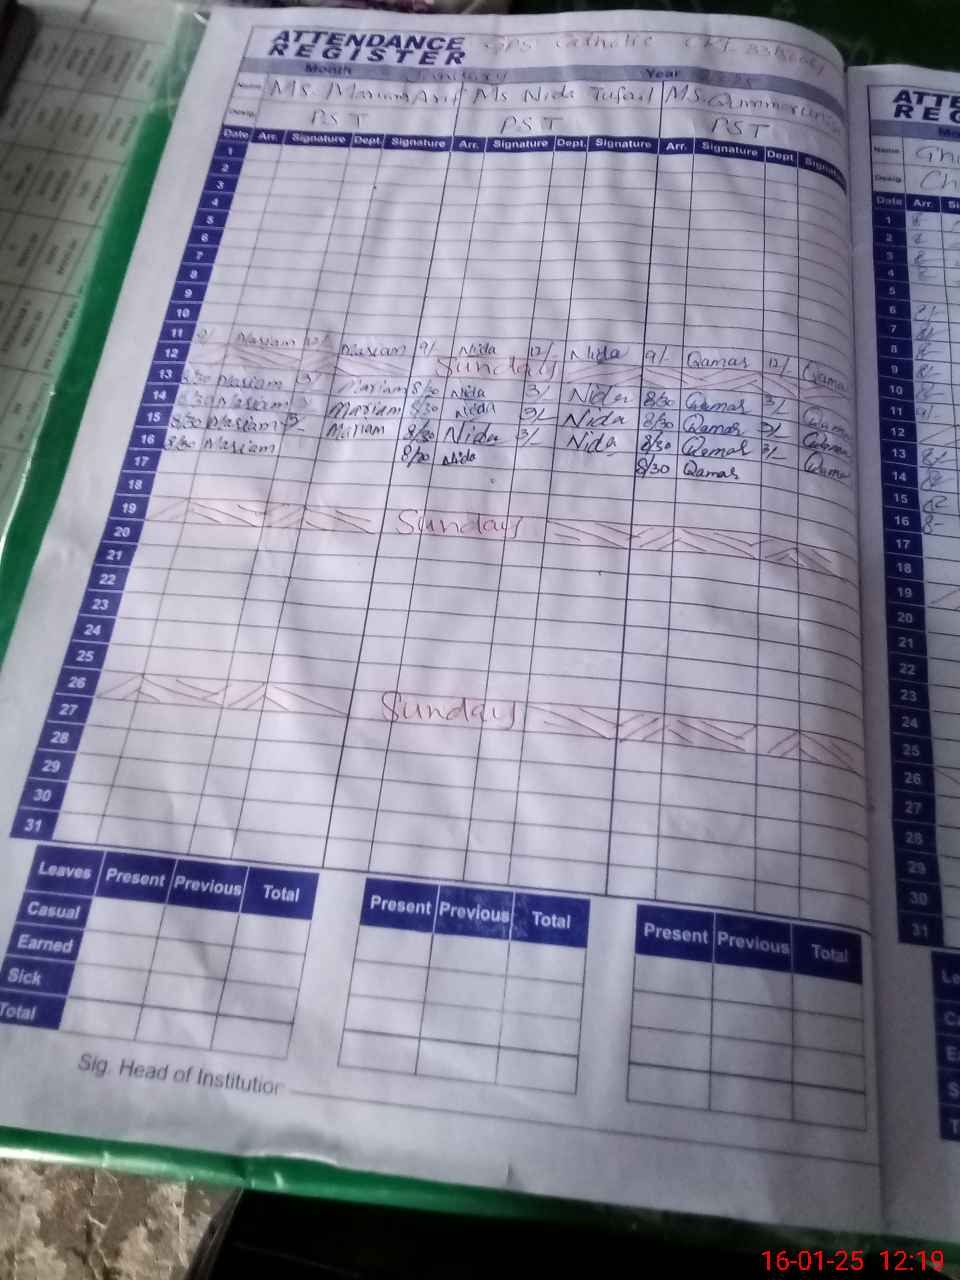 ATTENDANCE REGISTER GPS Catholic
Month January Year 2025
Name Ms. Mariam Arif Ms Nida Tufail Ms.
Desig. PST PST PST
Date Arr. Signature Dept. Signature Arr. Signature Dept. Signature Arr. Signature Dept Signature
1
2
3
4
5
6
7
8
9
10
11 9/- Mariam 12/- Mariam 9/- Nida 12/- Nida 9/- Qamar 12/- Qamar
12 Sunday
13 8/30 Mariam 3/- Mariam 8/30 Nida 3/- Nida 8/30 Qamar 3/- Qamar
14 8/30 Mariam 3/- Mariam 8/30 Nida 3/- Nida 8/30 Qamar 3/- Qamar
15 8/30 Mariam 3/- Mariam 8/30 Nida 3/- Nida 8/30 Qamar 3/- Qamar
16 8/30 Mariam 8/30 Nida 8/30 Qamar
17
18
19 Sunday
20
21
22
23
24
25
26 Sunday
27
28
29
30
31
Leaves Present Previous Total Present Previous Total Present Previous Total
Casual
Earned
Sick
Total
Sig. Head of Institution
Name
Desig.
Date Arr.
1 8
2
3 8
4 8
5
6
7 8/-
8
9 8/-
10
11
12
13 8/-
14
15
16 8-
17
18
19
20
21
22
23
24
25
26
27
28
29
30
31
16-01-25 12:19